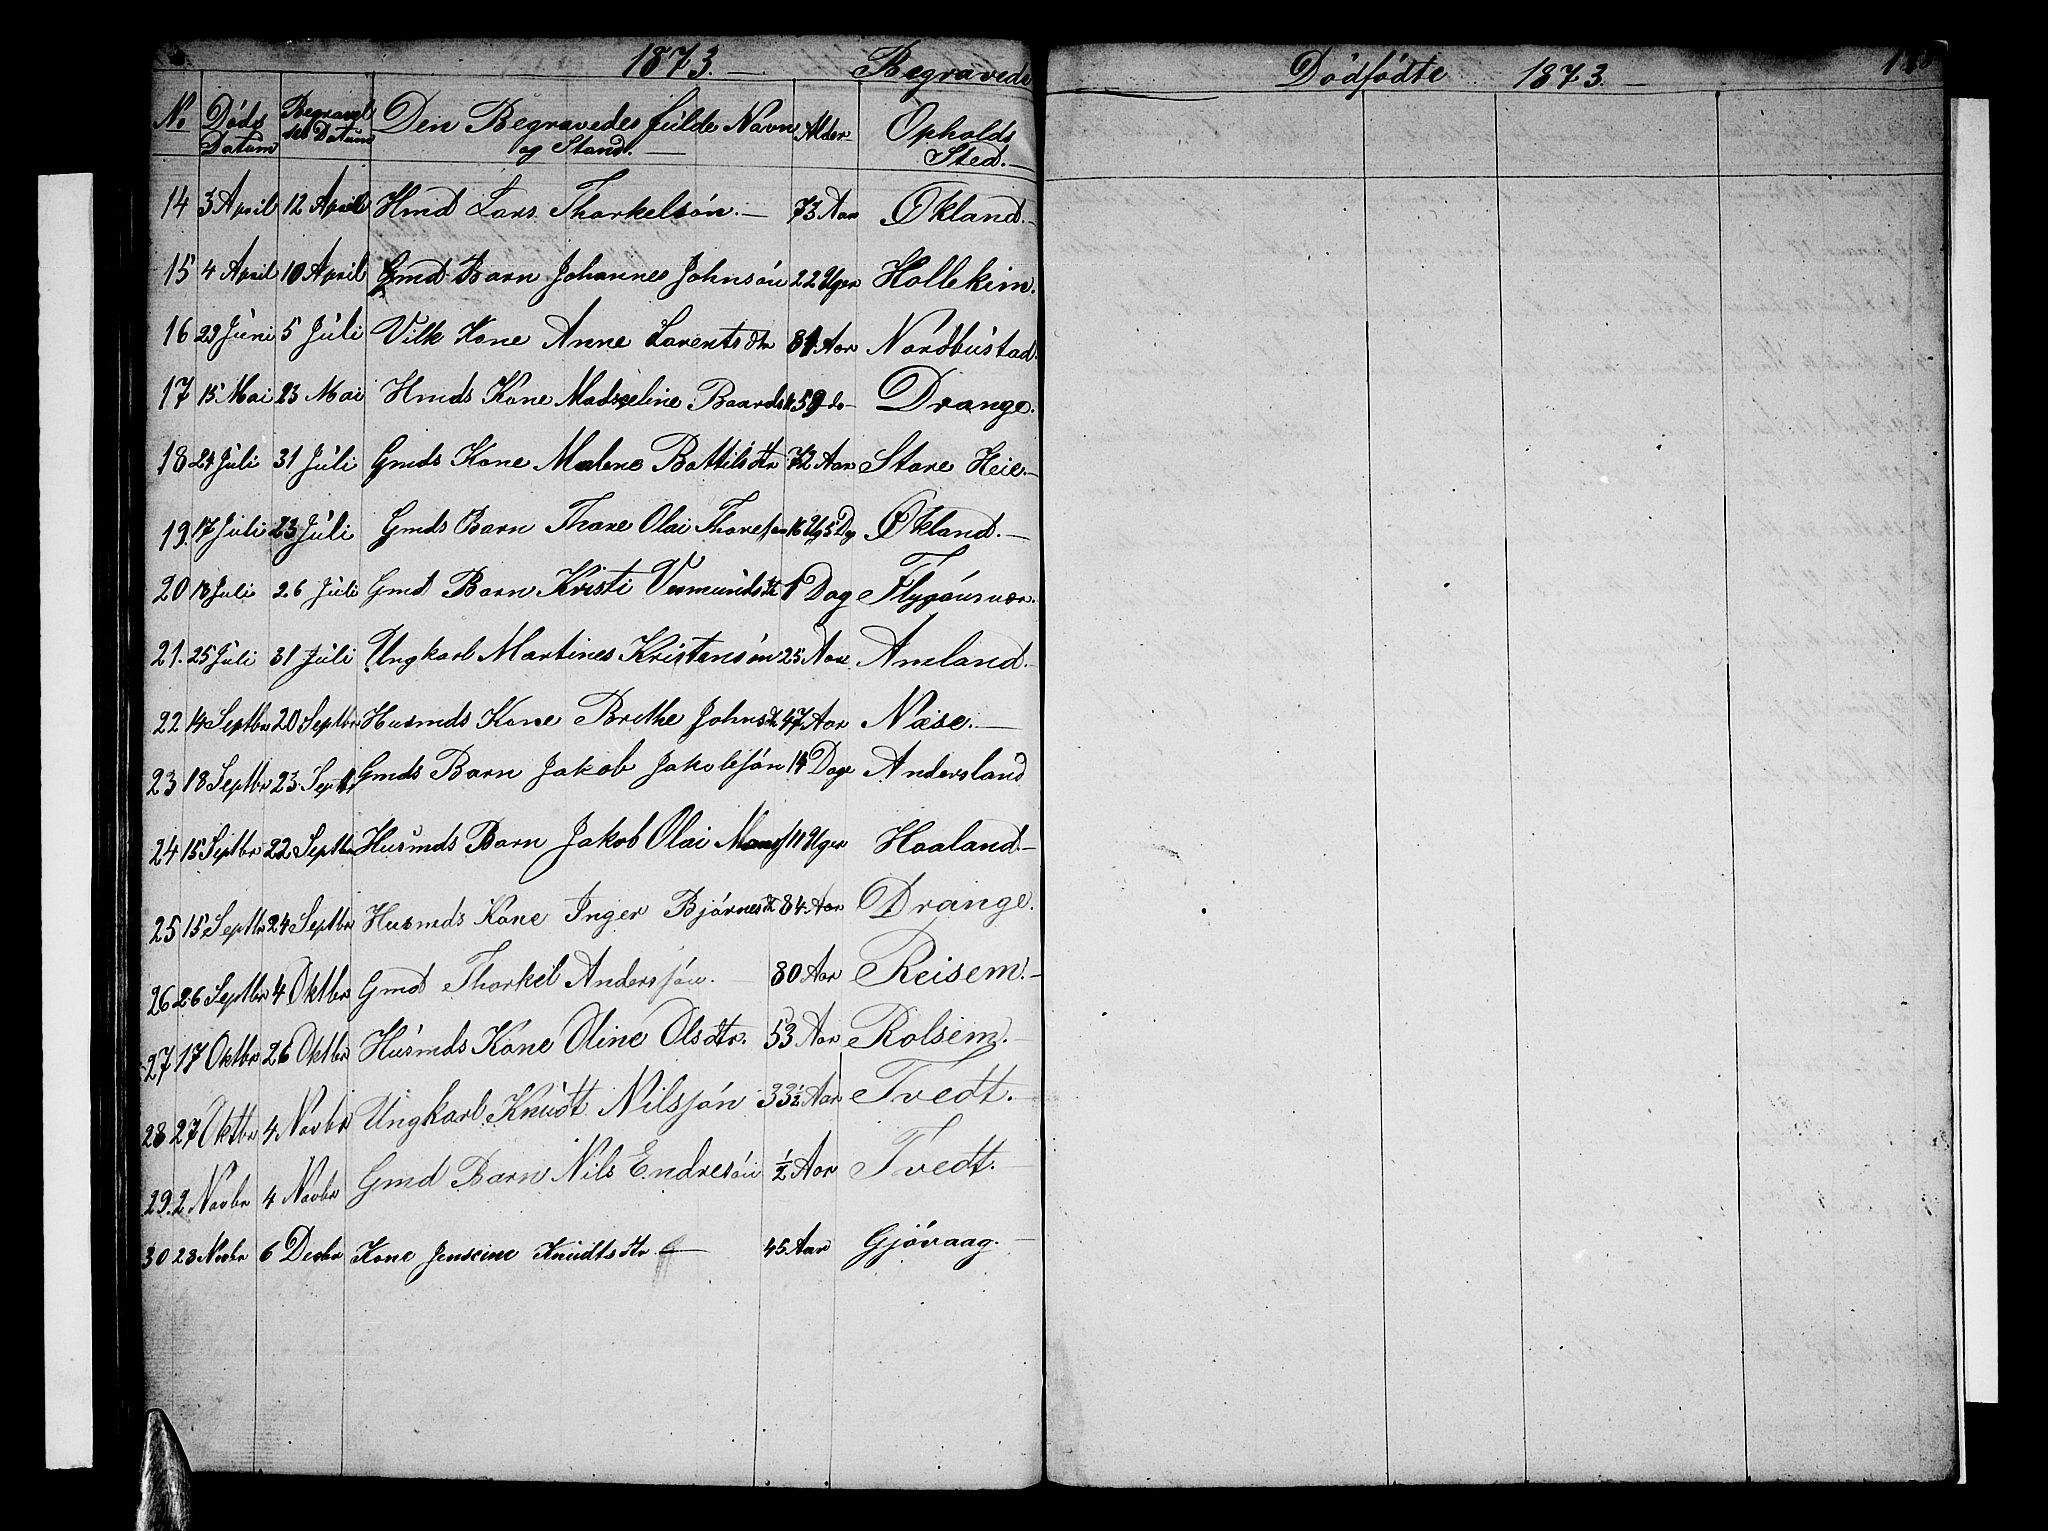 1873. Begravede
No Döds Datum Begravelses Datum Den Begravedes fulde Navn og Stand. Alder Opholds Sted.
14 3 April 12 April Hmd Lars Thorkelsön. 73 Aar Økland.
15 4 April 10 April Gmd Barn Johannes Johnsön 22 Uger Hollekim.
16 29 Juni 5 Juli Vilk Kone Anne Larentsdtr Aar Nordbustad.
17 15 Mai 23 Mai Hmds Kone Madseline Baards 59 do Drange.
18 24 Juli 31 Juli Gmds Kone Malene Bottilsdtr 72 Aar Store Heie.
19. 17 Juli 23 Juli Gmds Barn Thore Olai Thoresen 16 Ug 5 Dg Økland.
20 13 Juli 26 Juli Gmd Barn Kristi Vermundsdt 1 Dag Flygansvær.
21. 25 Juli 31 Juli Ungkarl Martines Kristensön 25 Aar Amland.
22 14 Septbr 20 Septbr Husmds Kone Brithe Johnsdt 47 Aar Næse.
23 18 Septbr 23 Septb Gmds Barn Jakob Jakobsön 14 Dage Andersland
24 15 Septbr 22 Septbr Husmds Barn Jakob Olai Mons 11 Uger Haaland.
25 15 Septbr 24 Septbr Husmds Kone Inger Bjørnesdt 84 Aar Drange.
26 26 Septbr 4 Oktbr Gmd Thorkel Andersön. 80 Aar Reisem.
27 17 Oktbr 26 Oktbr Husmds Kone Oline Olsdtr. 53 Aar Rolsem.
28 27 Oktbr 4 Novbr Ungkarl Knudt Nilsön 33 ½ Aar Tvedt.
29. 2 Novbr 4 Novbr Gmd Barn Nils Endresön ½ Aar Tvedt.
30 28 Novbr 6 Decbr Kone Jenseine Knudtsdtr 45 Aar Gjövaag.
Dödfödte 1873.